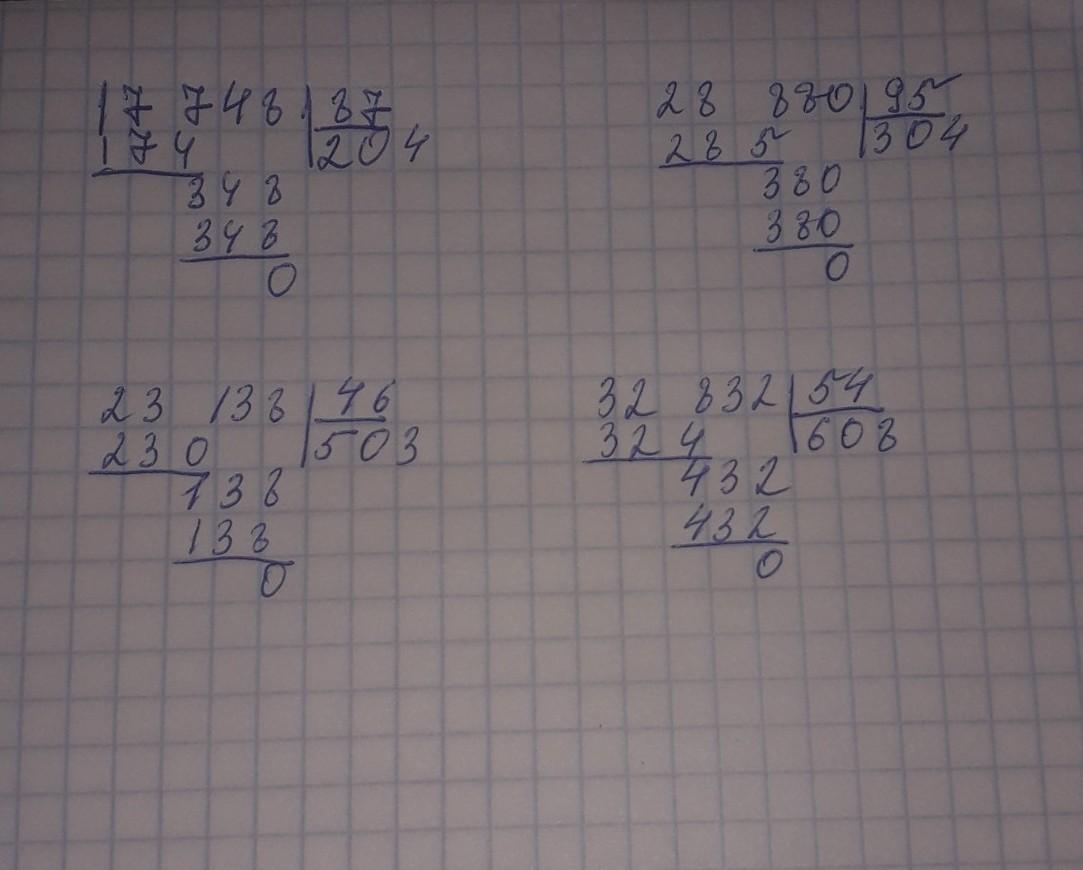 17 748 87
174 204
348
348
0
28 880 95
28 5 304
380
380
0
23 138 46
23 0 503
138
138
0
32 832 54
32 4 608
432
432
0